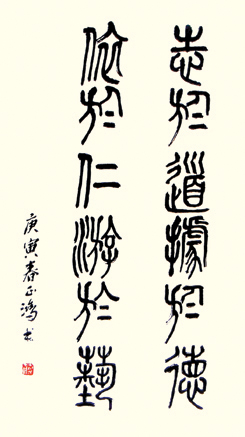 志於道據於德
依於仁游於藝
庚寅春正鴻书